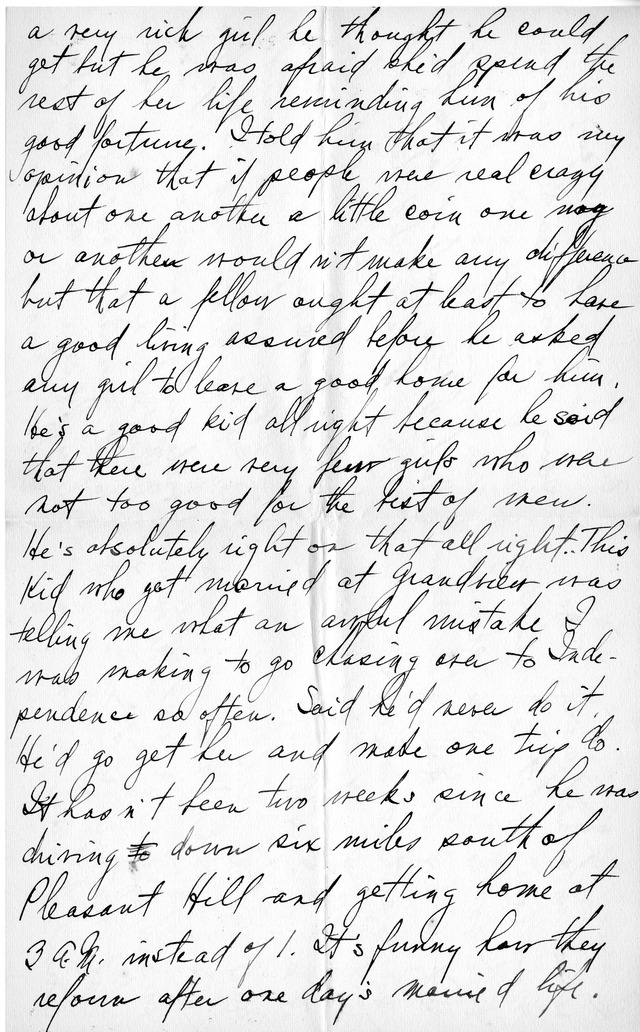 a very rich girl he thought he could
get but he was afraid she'd spend the
rest of her life reminding him of his
good fortune. I told him that it was my
opinion that if people were real crazy
about one another a little coin one way
or another wouldn't make any difference
but that a fellow ought at least to have
a good living assured before he asked
any girl to leave a good home for him.
He's a good kid all right because he said
that there were very few girls who were
not too good for the best of men.
He's absolutely right on that all right. This
kid who got married at Grandview was
telling me what an awful mistake I
was making to go chasing over to Inde-
pendence so often. Said he'd never do it.
He'd go get her and make one trip do.
It hasn't been two weeks since he was
driving to down six miles south of
Pleasant Hill and getting home at
3 A.M. instead of 1. It's funny how they
reform after one day's married life.